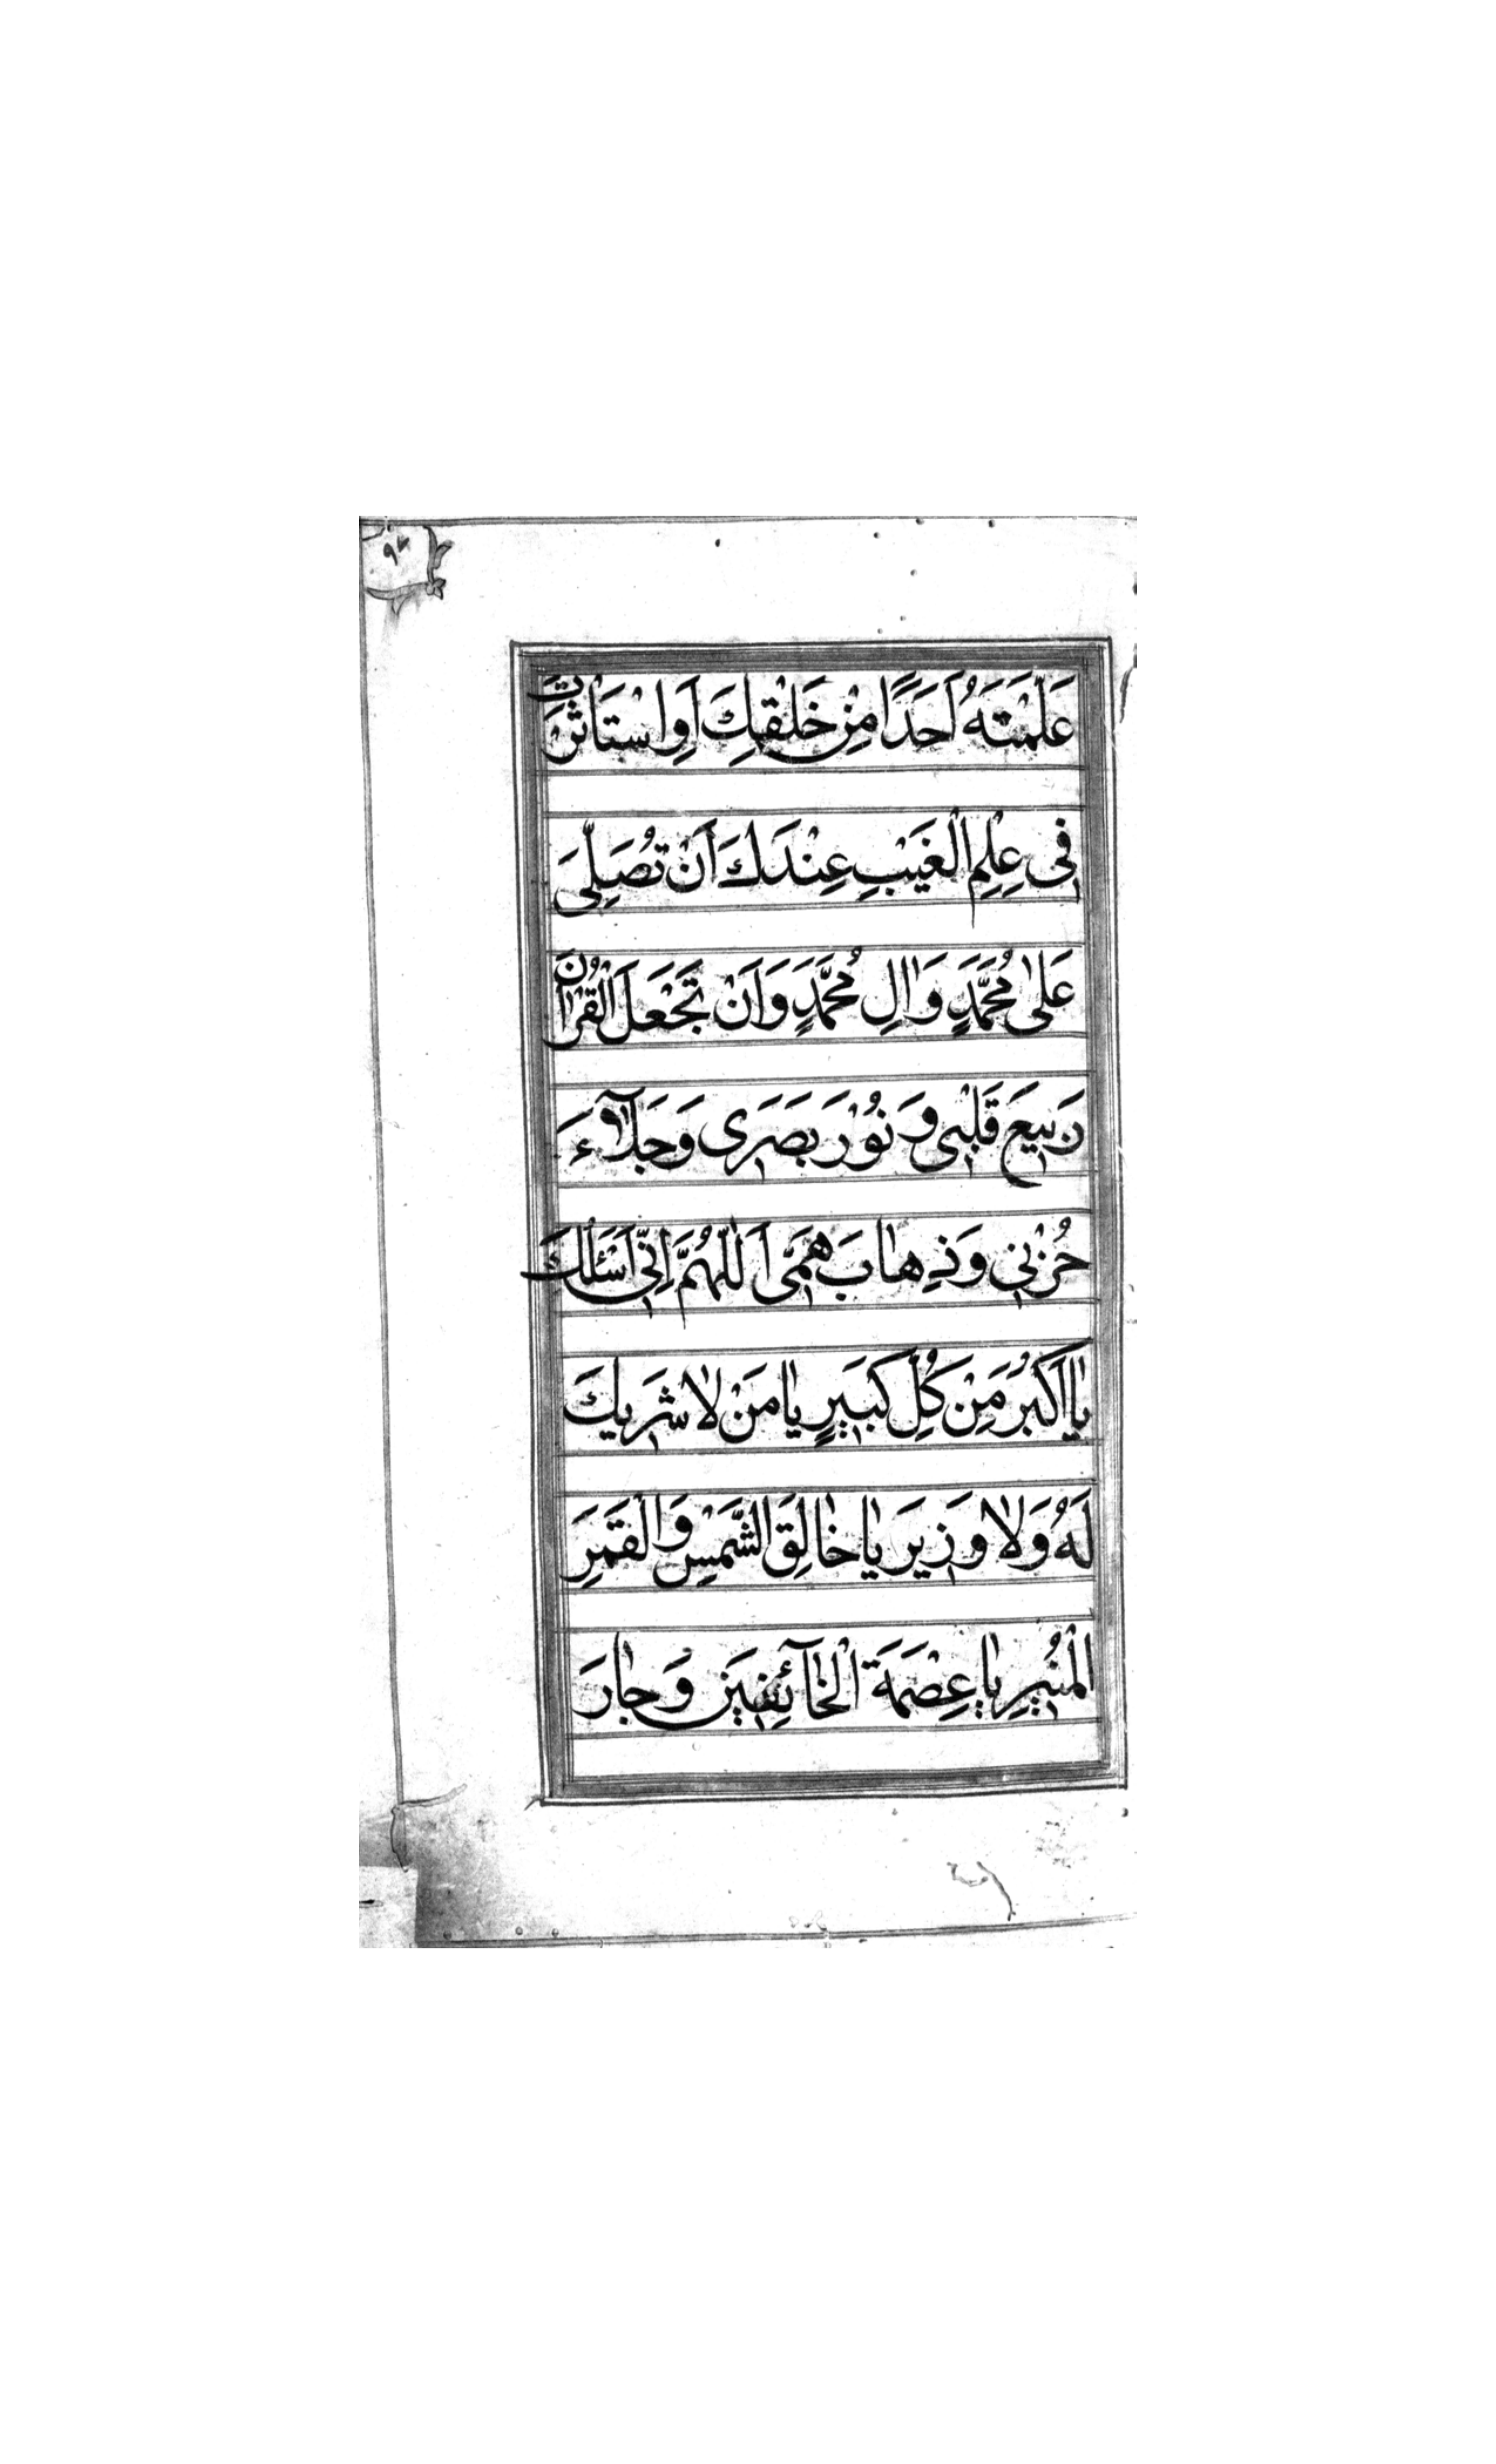 عَلَّمْتَهُ اَحَدًا مِنْ خَلْقِكَ اَوِ اسْتَاْثَرْتَ
فِى عِلْمِ الْغَيْبِ عِنْدَكَ اَنْ تُصَلِّىَ
عَلٰى مُحَمَّدٍ وَاٰلِ مُحَمَّدٍ وَاَنْ تَجْعَلَ الْقُرْاٰنَ
رَبِيعَ قَلْبِى وَ نُوْرَ بَصَرِى وَ جَلَآءَ
حُزْنِى وَ ذِهٰابَ هَمِّى اَللّٰهُمَّ اِنِّى اَسْئَلُكَ
يٰا اَكْبَرُ مِنْ كُلِّ كَبِيرٍ يٰا مَنْ لاٰ شَرِيكَ
لَهُ وَلاٰ وَزِيرَ يٰا خٰالِقَ الشَّمْسِ وَالْقَمَرِ
الْمُنِيرِ يٰا عِصْمَةَ الْخٰآئِفِينَ وَ جٰارَ